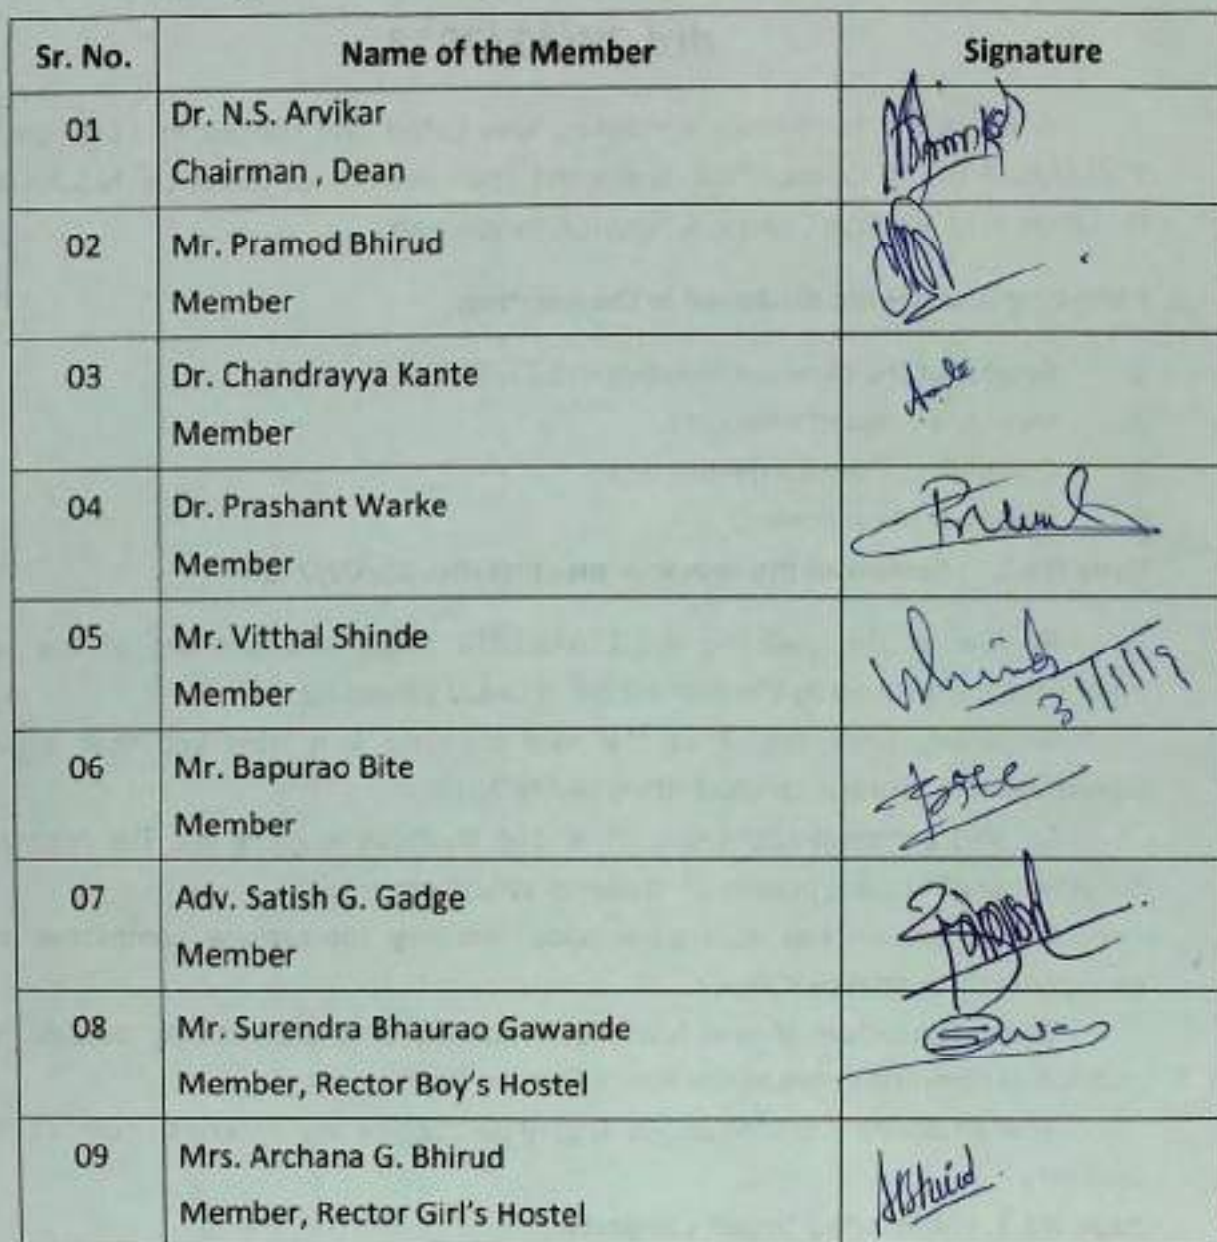 Sr. No. Name of the Member Signature
01 Dr. N.S. Arvikar
Chairman , Dean
02 Mr. Pramod Bhirud
Member
03 Dr. Chandrayya Kante
Member
04 Dr. Prashant Warke
Member
05 Mr. Vitthal Shinde
Member
31/1/19
06 Mr. Bapurao Bite
Member
07 Adv. Satish G. Gadge
Member
08 Mr. Surendra Bhaurao Gawande
Member, Rector Boy's Hostel
09 Mrs. Archana G. Bhirud
Member, Rector Girl's Hostel